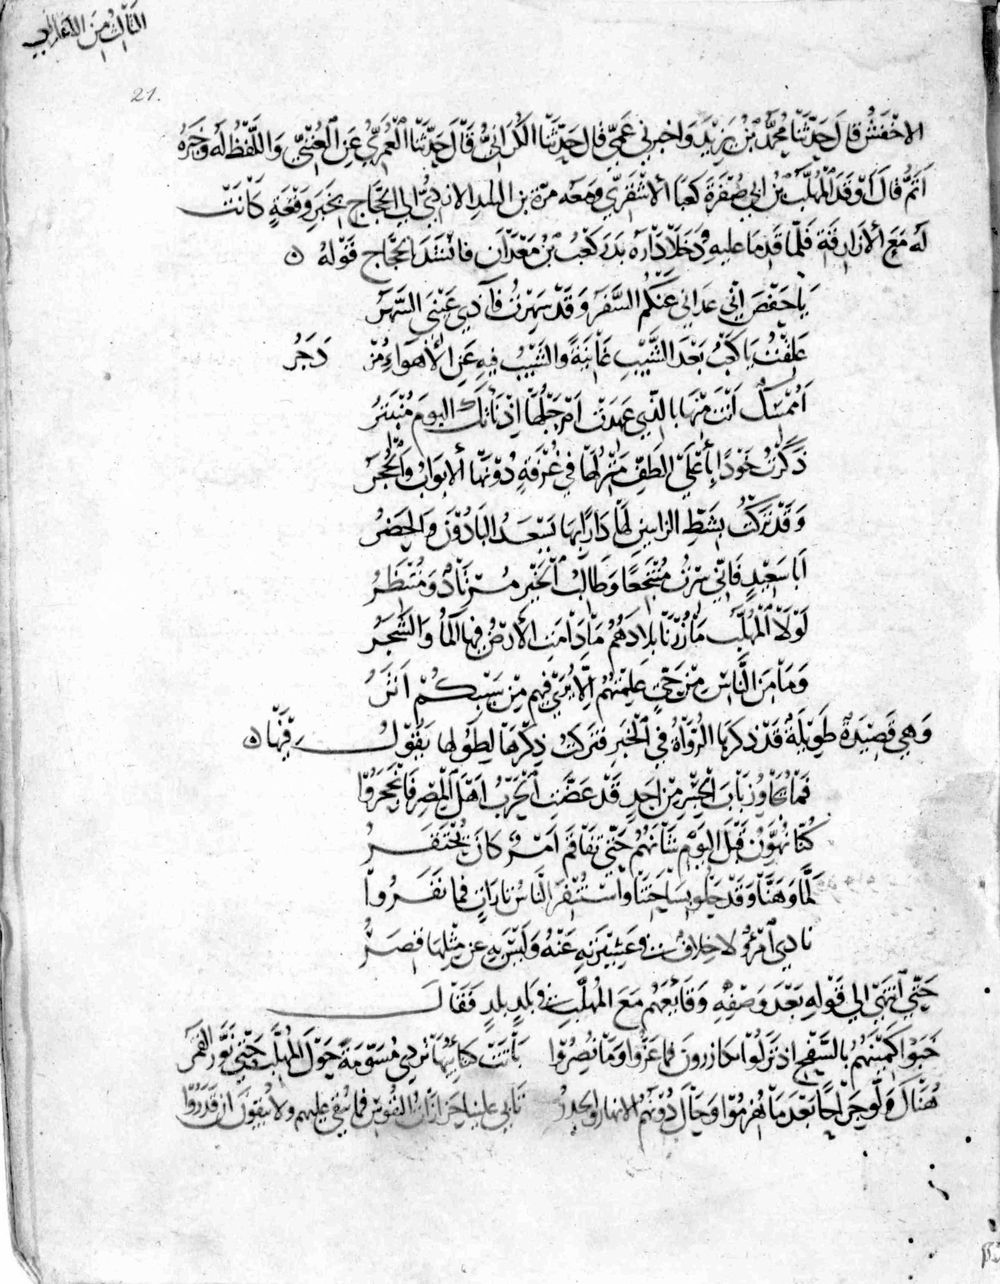 الثالث من الاغاني
21.
الاخفش قال حدثنا محمد بن يزيد واخبرني عمي قال حدثنا الكراني قال حدثنا العمري عن العتبي واللفظ له وخبره
اتم قال اوفد المهلب بن ابي صفرة كعبا الاشقري ومعه مرة بن التليد الازدي الى الحجاج بخبر وقعة كانت
له مع الازارقة فلما قدما عليه ودخلا داره بدر كعب بن معدان فانشد الحجاج قوله
يا حفص اني عداني عنكم السفر وقد سهرت فآذى عيني السهر
علقت يا كعب بعد الشيب غانية والشيب فيه عن الاهواء مزدجر
اممسك انت منها بالذي عهدت ام حبلها اذ نأتك اليوم منبتر
ذكرت خودا بأعلى الطف منزلها في غرفة دونها الابواب والحجر
وقد تركت بشط الزابيين لها دارا بها يسعد البادون والحضر
ابا سعيد فاني سرت منتجعا وطالب الخير مرتاد ومنتظر
لولا المهلب ما زرنا بلادهم ما دامت الارض فيها الماء والشجر
وما من الناس من حي علمتهم الا يرى فيهم من سيبكم اثر
وهي قصيدة طويلة قد ذكرها الرواة في الخبر فترك ذكرها لطولها يقول فيها
فما يجاوز باب الجسر من احد قد عضت الحرب اهل المصر فانجحروا
كنا نهون قبل اليوم شأنهم حتى تفاقم امر كان يحتقر
لما وهنا وقد حلوا بساحتنا واستنفر الناس تارات فما نفروا
نادى امرؤ لا خلاف في عشيرته عنه وليس به عن مثلها قصر
حتى انتهى الى قوله بعد وصفه وقائعهم مع المهلب في بلد بلد فقال
خبوا كمينهم بالسفح اذ نزلوا بكازرون فما عزوا وما نصروا باتت كتائبها تردي مسومة حول المهلب حتى نور القمر
هناك ولوا جراحا بعد ما هزموا وحال دونهم الانهار والجدر تأبى علينا حزازات النفوس فما نبقي عليهم ولا يبقون ان قدروا